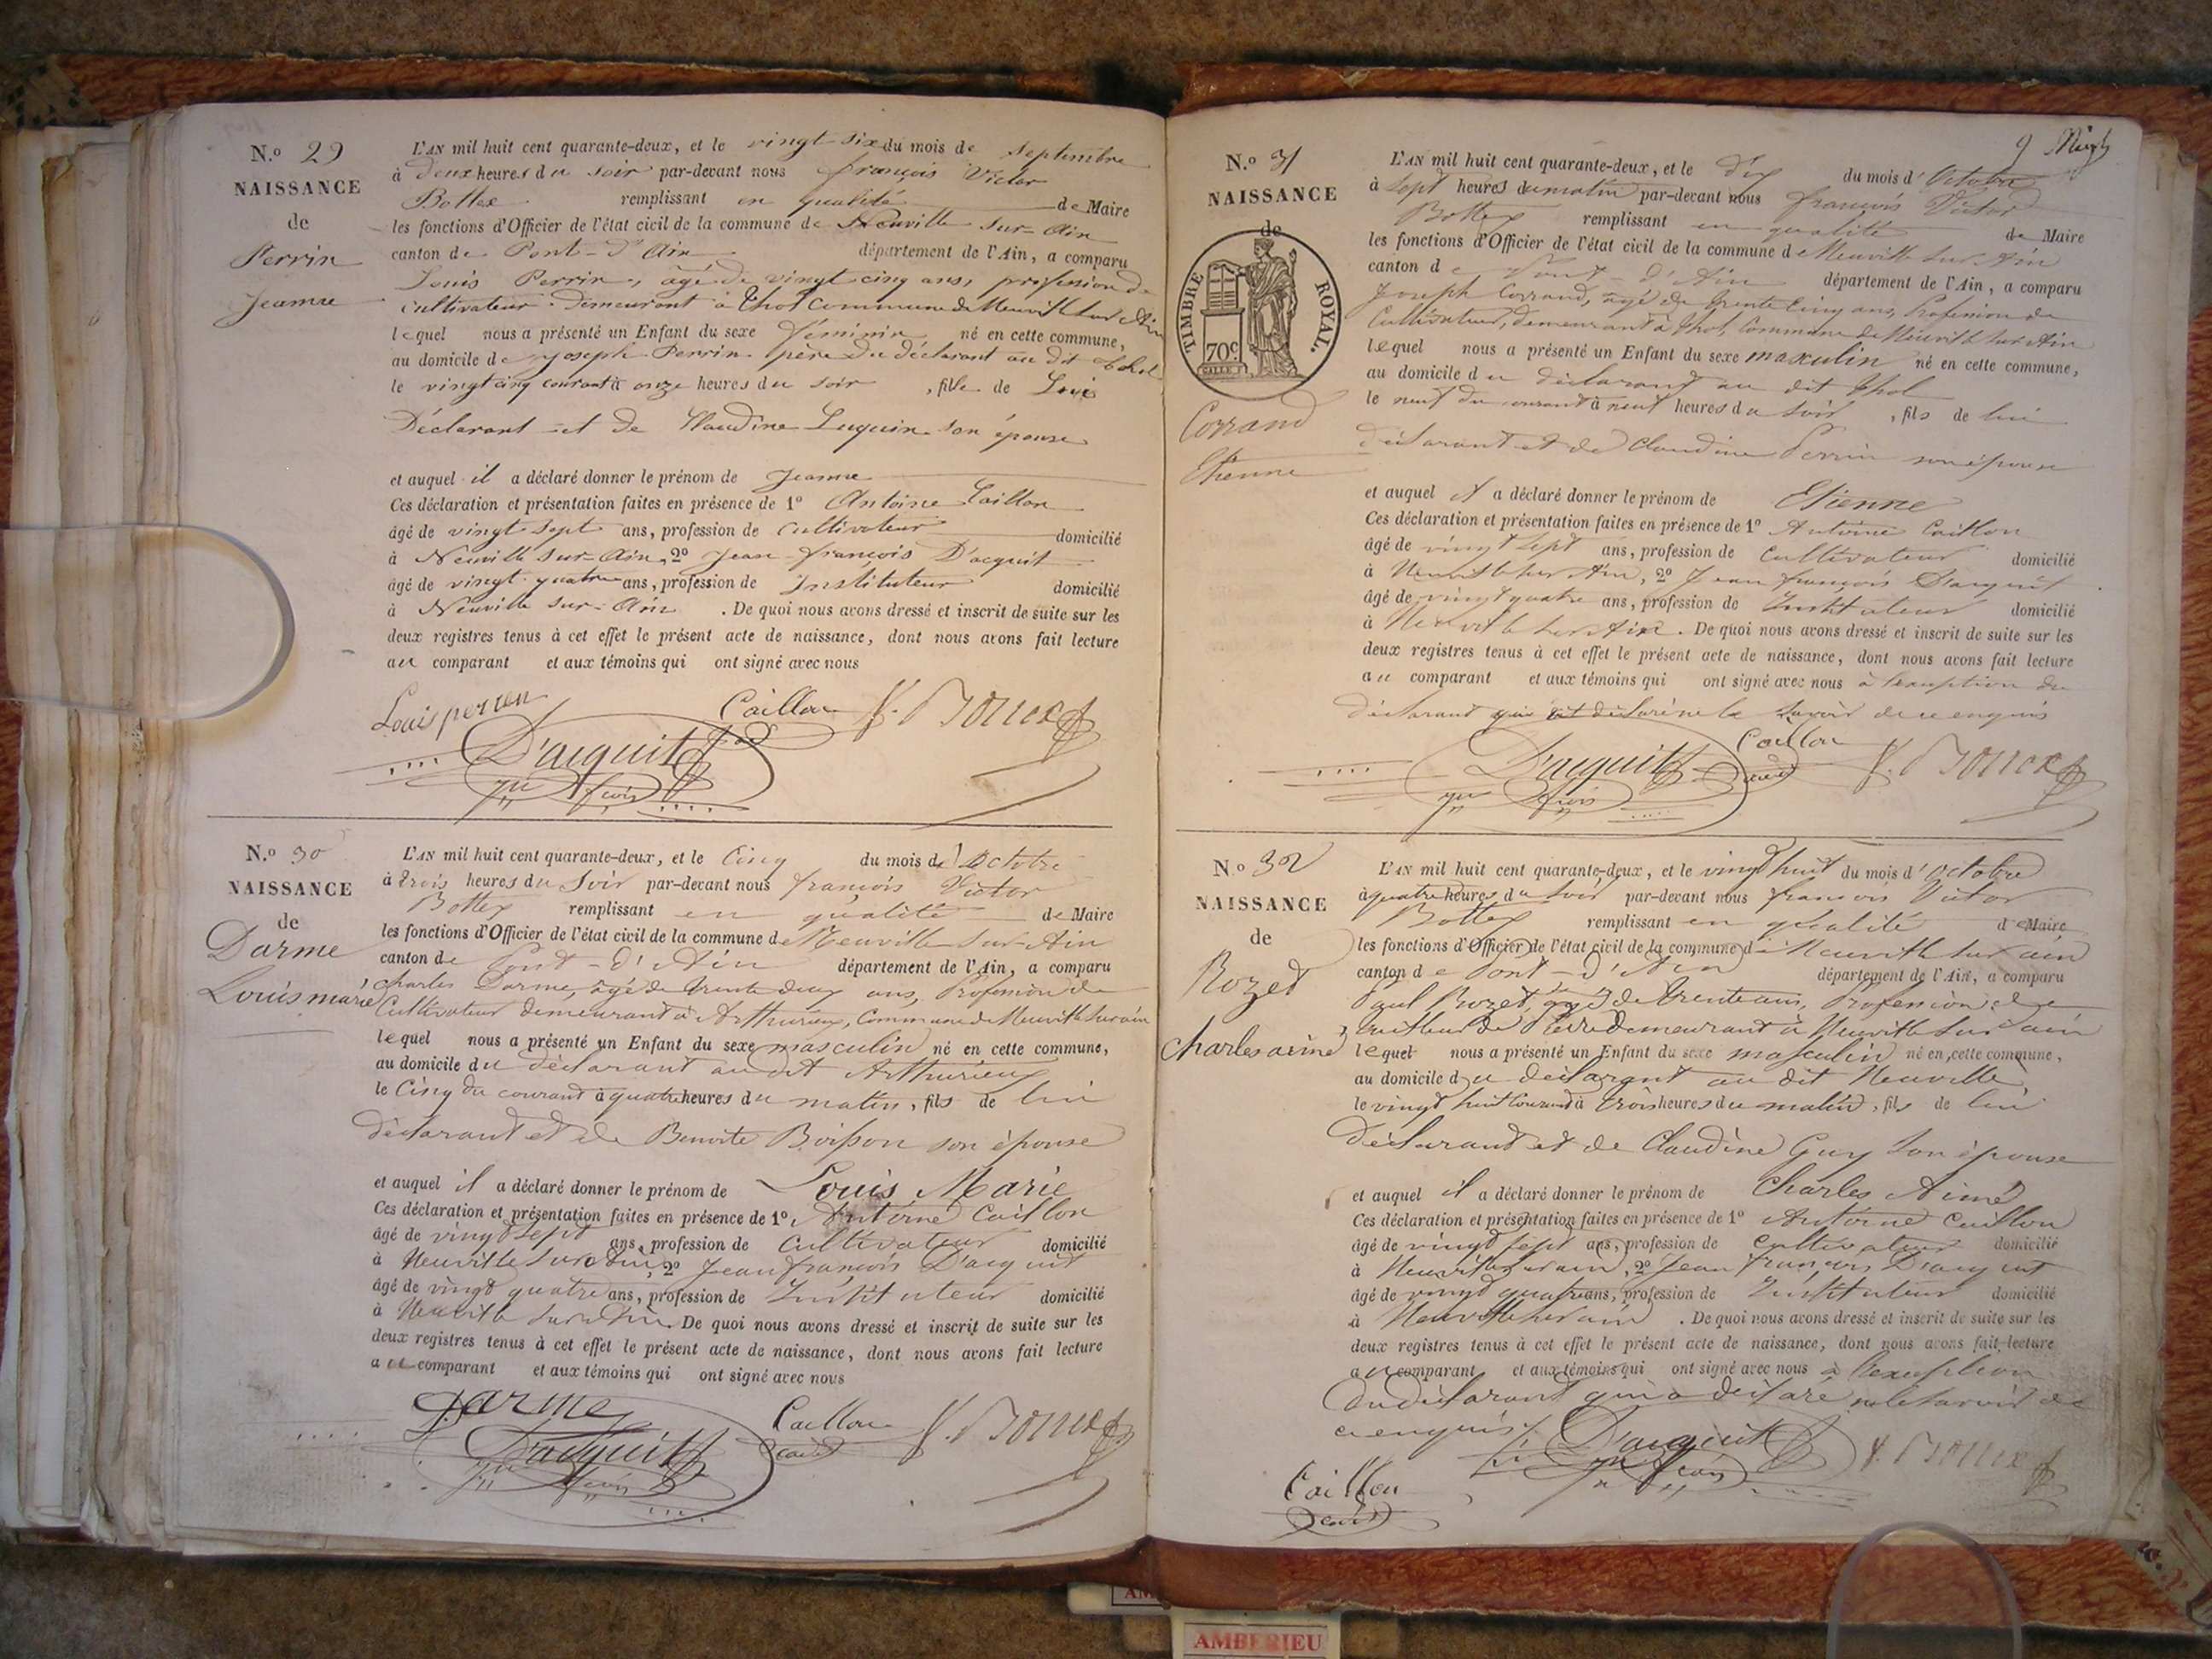 N.º 29
NAISSANCE
de
Perrin
Jeanne
L'AN mil huit cent quarante-deux, et le vingt six du mois de Septembre
à deux heures du soir par-devant nous françois Victor
Bottex remplissant en qualité de Maire
les fonctions d'Officier de l'état civil de la commune de Neuville sur-Ain
canton de Pont-d'Ain département de l'Ain, a comparu
Louis Perrin, agé de vingt cinq ans, profession de
cultivateur demeurant à Thol commune de Neuville sur Ain
lequel nous a présenté un Enfant du sexe féminin né en cette commune,
au domicile de Joseph Perrin père du déclarant au dit thol
le vingt cinq courant à onze heures du soir, fille de Lui
Déclarant et de Claudine Luquin son épouse
et auquel il a déclaré donner le prénom de Jeanne
Ces déclaration et présentation faites en présence de 1º Antoine Caillon
âgé de vingt sept ans, profession de Cultivateur domicilié
à Neuville sur-Ain, 2º Jean-françois D'acquit
âgé de vingt quatre ans, profession de Instituteur domicilié
à Neuville sur-Ain. De quoi nous avons dressé et inscrit de suite sur les
deux registres tenus à cet effet le présent acte de naissance, dont nous avons fait lecture
au comparant et aux témoins qui ont signé avec nous
Louis perren Caillon V. Bottex
D'acquit
jn fcois
N.º 30
NAISSANCE
de
Darme
Louis marie
L'AN mil huit cent quarante-deux, et le Cinq du mois d'Octobre
à trois heures du Soir par-devant nous françois Victor
Bottex remplissant en qualité de Maire
les fonctions d'Officier de l'état civil de la commune de Neuville Sur-Ain
canton de Pont-d'Ain département de l'Ain, a comparu
Charles Darme, âgé de trente deux ans, Profession de
Cultivateur demeurant à Arthurieux, Commune de Neuville Sur ain
lequel nous a présenté un Enfant du sexe masculin né en cette commune,
au domicile du déclarant audit Arthurieux
le Cinq du courant à quatre heures du matin, fils de lui
déclarant et de Benoite Boisson son épouse
et auquel il a déclaré donner le prénom de Louis Marie
Ces déclaration et présentation faites en présence de 1º, Antoine Caillon
âgé de vingt sept ans, profession de Cultivateur domicilié
à Neuville Sur Ain, 2º Jean françois D'acquit
âgé de vingt quatre ans, profession de Instituteur domicilié
à Neuville Sur Ain. De quoi nous avons dressé et inscrit de suite sur les
deux registres tenus à cet effet le présent acte de naissance, dont nous avons fait lecture
au comparant et aux témoins qui ont signé avec nous
Darme Caillon V. Bottex
D'acquit
jn fcois
9
N.º 31
NAISSANCE
de
TIMBRE ROYAL.
70c.
Corrand
Etienne
L'AN mil huit cent quarante-deux, et le dix du mois d'Octobre
à Sept heures du matin par-devant nous françois Victor
Bottex remplissant en qualité de Maire
les fonctions d'Officier de l'état civil de la commune de Neuville Sur Ain
canton de Pont-d'Ain département de l'Ain, a comparu
Joseph Corrand, âgé de trente cinq ans, Profession de
Cultivateur, demeurant à thol, Commune de Neuville Sur Ain
lequel nous a présenté un Enfant du sexe masculin né en cette commune,
au domicile du déclarant au dit thol
le neuf du courant à neuf heures du Soir, fils de lui
déclarant et de Claudine Perrin son épouse
et auquel il a déclaré donner le prénom de Etienne
Ces déclaration et présentation faites en présence de 1º Antoine Caillon
âgé de vingt sept ans, profession de Cultivateur domicilié
à Neuville sur Ain, 2º Jean françois D'acquit
âgé de vingt quatre ans, profession de Instituteur domicilié
à Neuville Sur Ain. De quoi nous avons dressé et inscrit de suite sur les
deux registres tenus à cet effet le présent acte de naissance, dont nous avons fait lecture
au comparant et aux témoins qui ont signé avec nous à l'exception du
déclarant qui déclaré ne le Savoir de ce enquis
Caillon
D'acquit V. Bottex
jn fcois
N.º 32
NAISSANCE
de
Rozet
Charles aimé
L'AN mil huit cent quarante-deux, et le vingt huit du mois d'Octobre
à quatre heures du Soir par-devant nous françois Victor
Bottex remplissant en qualité de Maire
les fonctions d'Officier de l'état civil de la commune de Neuville Sur ain
canton de Pont-d'Ain département de l'Ain, a comparu
Paul Rozet, âgé de trente ans, Profession de
tailleur de Pierre demeurant à Neuville Sur ain
lequel nous a présenté un Enfant du sexe masculin né en cette commune,
au domicile du déclarant au dit Neuville
le vingt huit Courant à trois heures du matin, fils de lui
déclarant et de Claudine Guy Son épouse
et auquel il a déclaré donner le prénom de Charles Aimé
Ces déclaration et présentation faites en présence de 1º Antoine Caillon
âgé de vingt sept ans, profession de Cultivateur domicilié
à Neuville sur ain, 2º Jean françois D'acquit
âgé de vingt quatre ans, profession de Instituteur domicilié
à Neuville sur ain. De quoi nous avons dressé et inscrit de suite sur les
deux registres tenus à cet effet le présent acte de naissance, dont nous avons fait lecture
au comparant et aux témoins qui ont signé avec nous à l'exception
du déclarant qui a déclaré ne le Savoir de
ce enquis
D'acquit V. Bottex
jn fcois
Caillon
AMBERIEU